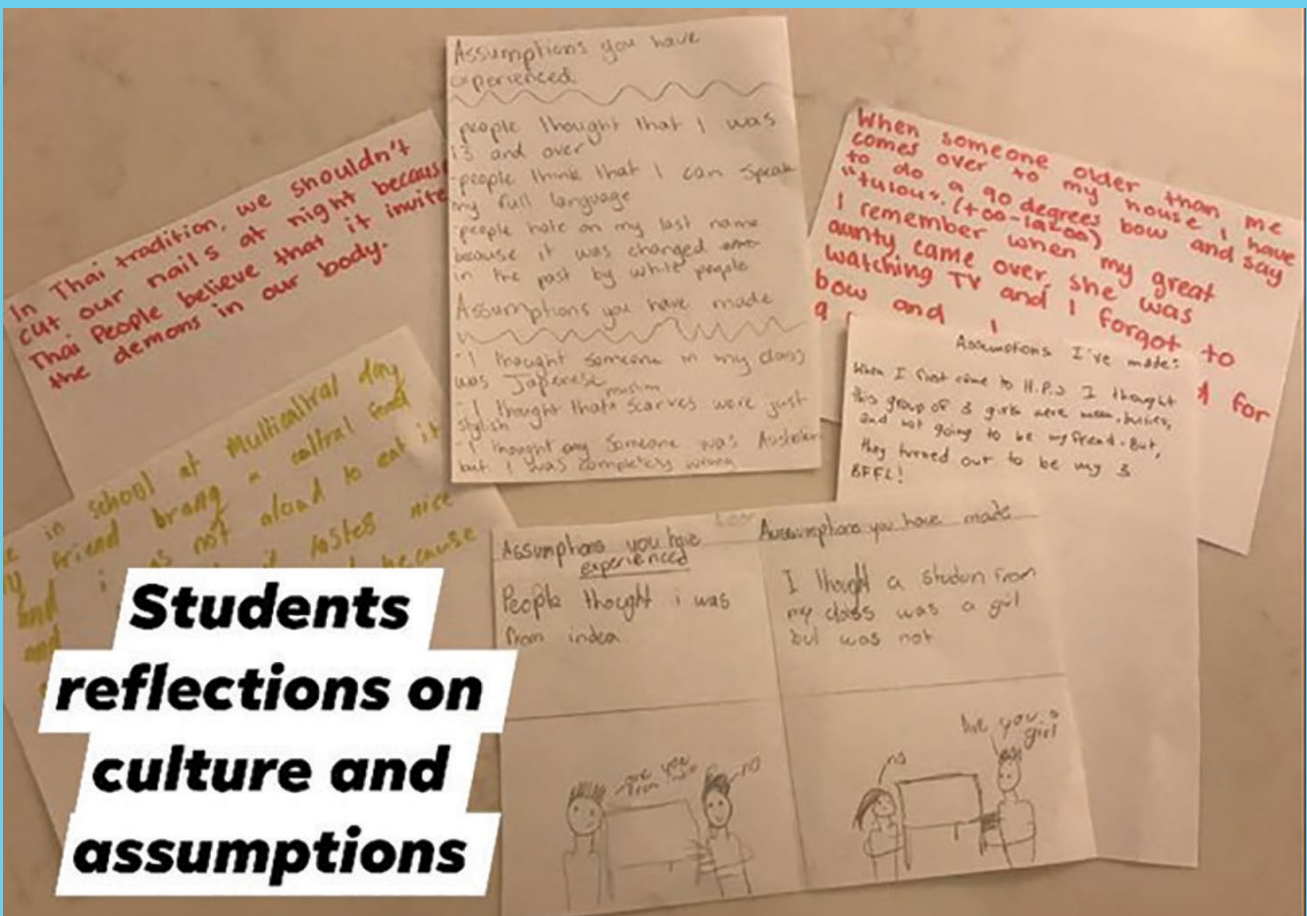 In Thai tradition, we shouldn't
cut our nails at night because
Thai People believe that it invite
the demons in our body.
Assumptions you have
experienced
people thought that I was
13 and over
-people think that I can speak
my full language
-people hate on my last name
because it was changed
in the past by white people
Assumptions you have made
-I thought someone in my class
was Japenese
muslim
-I thought that scarves were just
stylish
-I thought someone was Australian
but I was completely wrong
When someone older than me
comes over to my house, I have
to do a 90 degrees bow and say
"tulous". (too-laoo)
I remember when my great
aunty came over, she was
watching TV and I forgot to
bow and
for
Assumptions I've made:
When I first came to H.P.S I thought
this group of 3 girls were mean, bullies,
and not going to be my freind. But,
they turned out to be my 3
BFFL!
in school at Multicaltral day
friend brang a caltral food
and i was not aloud to eat it
tastes nice
because
Assumptions you have
experienced
People thought i was
from indea
are you
from
no
Assumptions you have made
I thought a studen from
my class was a girl
but was not
no
Are you a
girl
Students
reflections on
culture and
assumptions